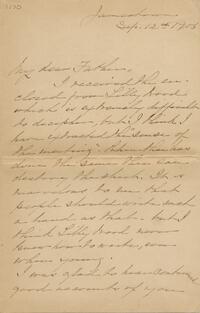 Jamestown
Sep. 12th 1906
My dear Father,
I received the en-
closed from Libby Wood
which is extremely difficult
to decipher, but I think I
have extracted the sense of
the meaning. When has
done the same then can
destroy the stuck. It is
marvelous to me that
people should write such
a hand as that. but I
think Libby Wood never
knew how to write, even
when young.
I was glad to hear
good accounts of you